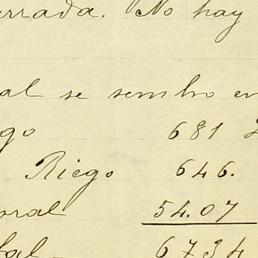 errada. No hay
al se sembro en
go 681
Riego 646.
oral 54.07
tal 6734